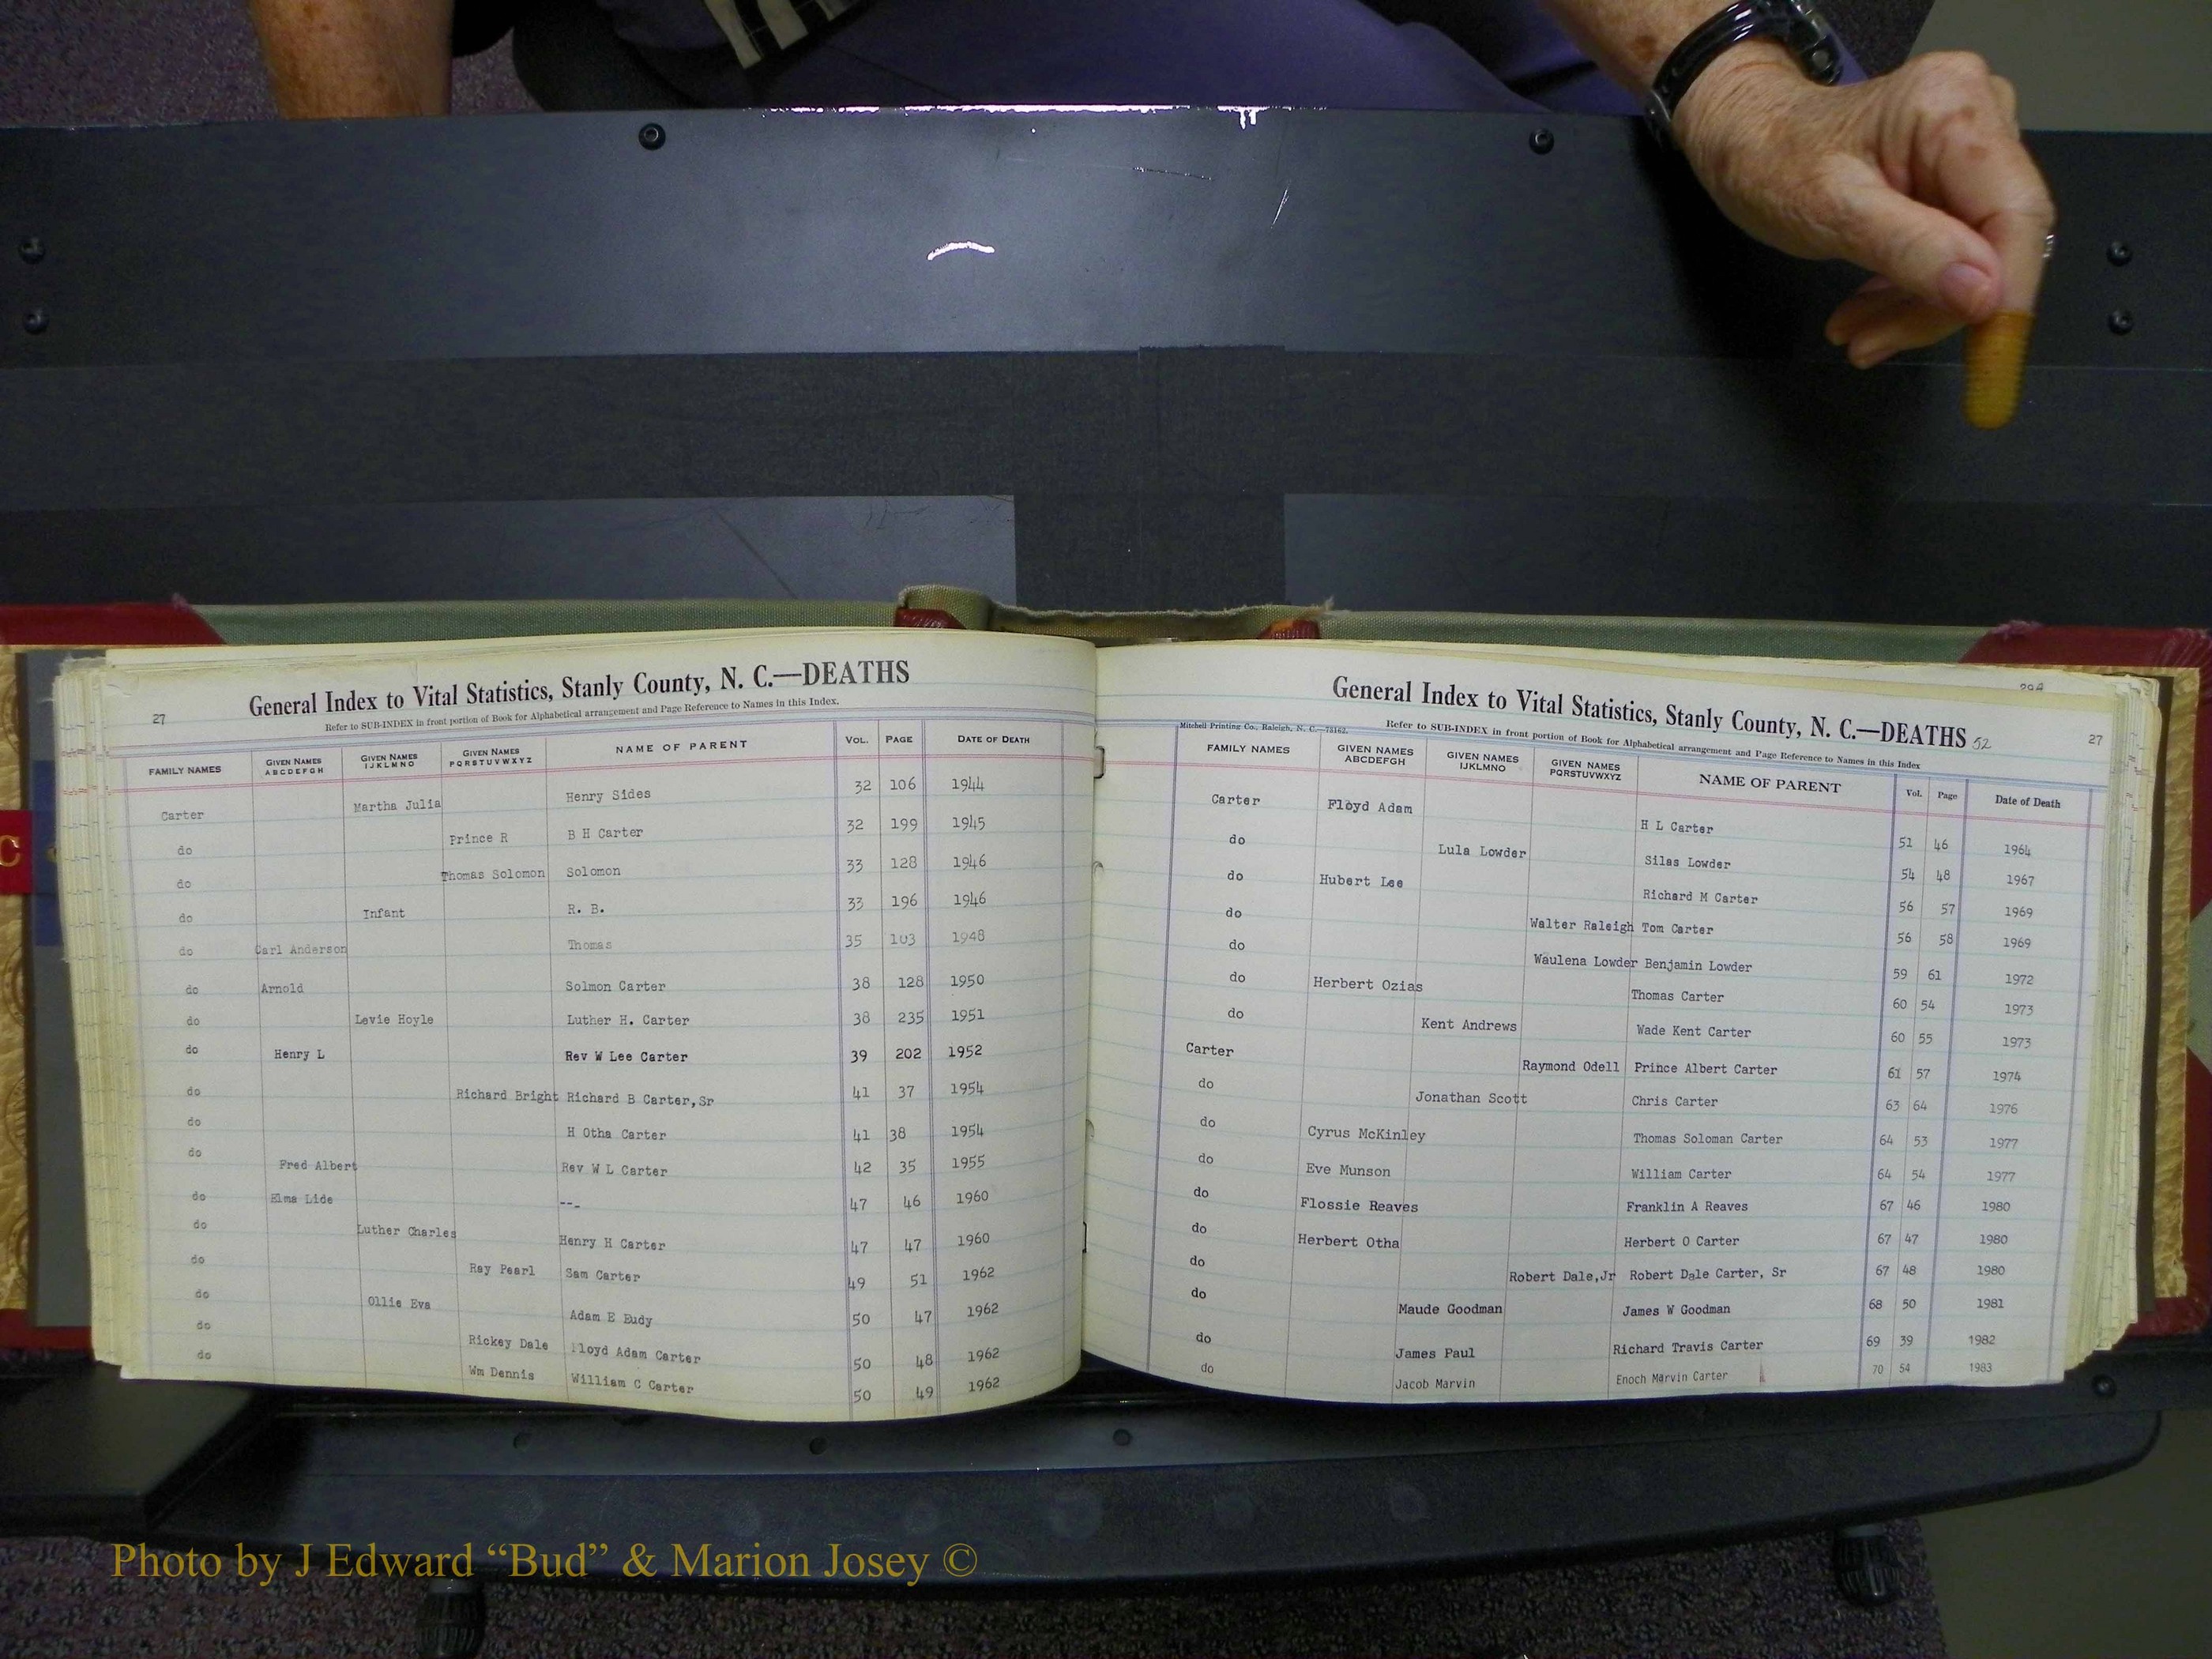 General Index to Vital Statistics, Stanly County, N. C.—DEATHS
27
Refer to SUB-INDEX in front portion of Book for Alphabetical arrangement and Page Reference to Names in this Index.
FAMILY NAMES GIVEN NAMES ABCDEFGH GIVEN NAMES IJKLMNO GIVEN NAMES PQRSTUVWXYZ NAME OF PARENT VOL. PAGE DATE OF DEATH
Carter Martha Julia Henry Sides 32 106 1944
do Prince R B H Carter 32 199 1945
do Thomas Solomon Solomon 33 128 1946
do Infant R. B. 33 196 1946
do Carl Anderson Thomas 35 103 1948
do Arnold Solmon Carter 38 128 1950
do Levie Hoyle Luther H. Carter 38 235 1951
do Henry L Rev W Lee Carter 39 202 1952
do Richard Bright Richard B Carter,Sr 41 37 1954
do H Otha Carter 41 38 1954
do Fred Albert Rev W L Carter 42 35 1955
do Elma Lide --- 47 46 1960
do Luther Charles Henry H Carter 47 47 1960
do Ray Pearl Sam Carter 49 51 1962
do Ollie Eva Adam E Eudy 50 47 1962
do Rickey Dale Floyd Adam Carter 50 48 1962
do Wm Dennis William C Carter 50 49 1962
General Index to Vital Statistics, Stanly County, N. C.—DEATHS 52
27
Mitchell Printing Co., Raleigh, N. C.—73162.
Refer to SUB-INDEX in front portion of Book for Alphabetical arrangement and Page Reference to Names in this Index
FAMILY NAMES GIVEN NAMES ABCDEFGH GIVEN NAMES IJKLMNO GIVEN NAMES PQRSTUVWXYZ NAME OF PARENT Vol. Page Date of Death
Carter Floyd Adam H L Carter 51 46 1964
do Lula Lowder Silas Lowder 54 48 1967
do Hubert Lee Richard M Carter 56 57 1969
do Walter Raleigh Tom Carter 56 58 1969
do Waulena Lowder Benjamin Lowder 59 61 1972
do Herbert Ozias Thomas Carter 60 54 1973
do Kent Andrews Wade Kent Carter 60 55 1973
Carter Raymond Odell Prince Albert Carter 61 57 1974
do Jonathan Scott Chris Carter 63 64 1976
do Cyrus McKinley Thomas Soloman Carter 64 53 1977
do Eve Munson William Carter 64 54 1977
do Flossie Reaves Franklin A Reaves 67 46 1980
do Herbert Otha Herbert O Carter 67 47 1980
do Robert Dale,Jr Robert Dale Carter, Sr 67 48 1980
do Maude Goodman James W Goodman 68 50 1981
do James Paul Richard Travis Carter 69 39 1982
do Jacob Marvin Enoch Marvin Carter 70 54 1983
C
Photo by J Edward “Bud” & Marion Josey ©